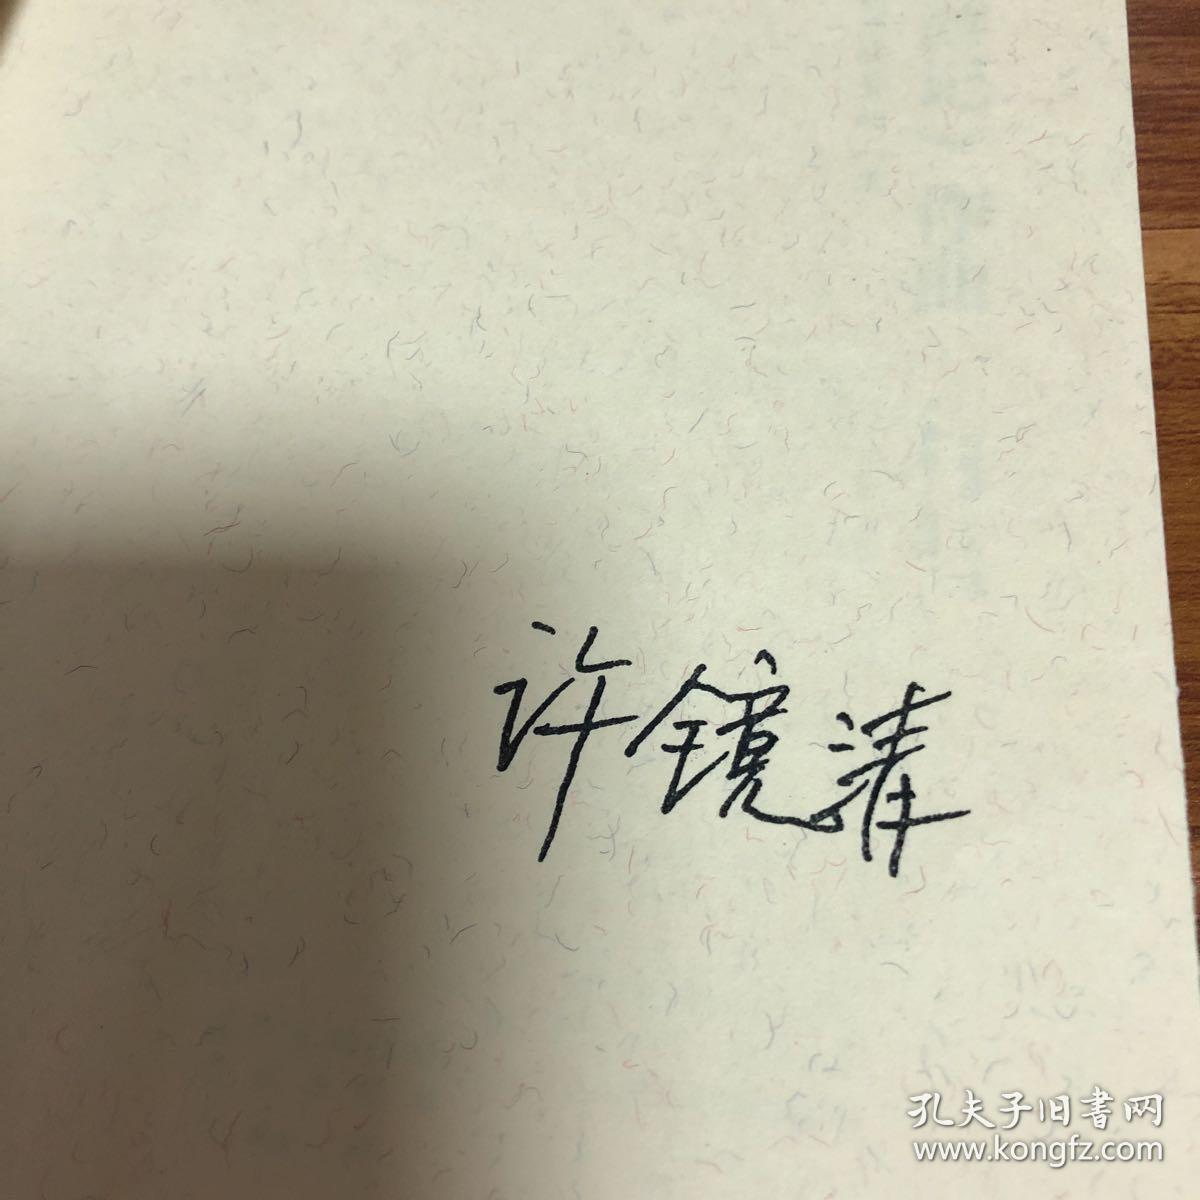 许镜清
孔夫子旧書网
www.kongfz.com